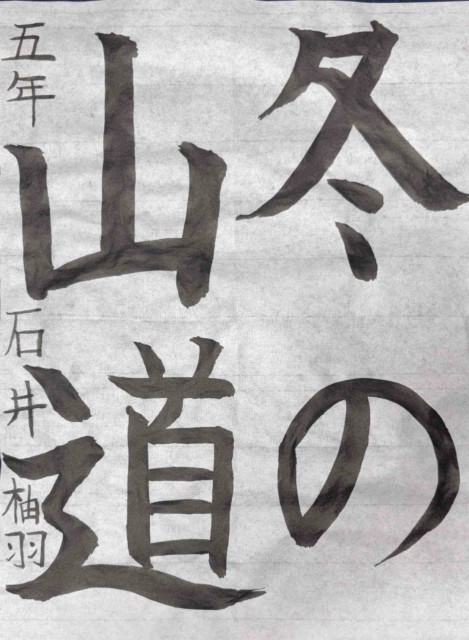 冬の
山道
五年 石井 柚羽